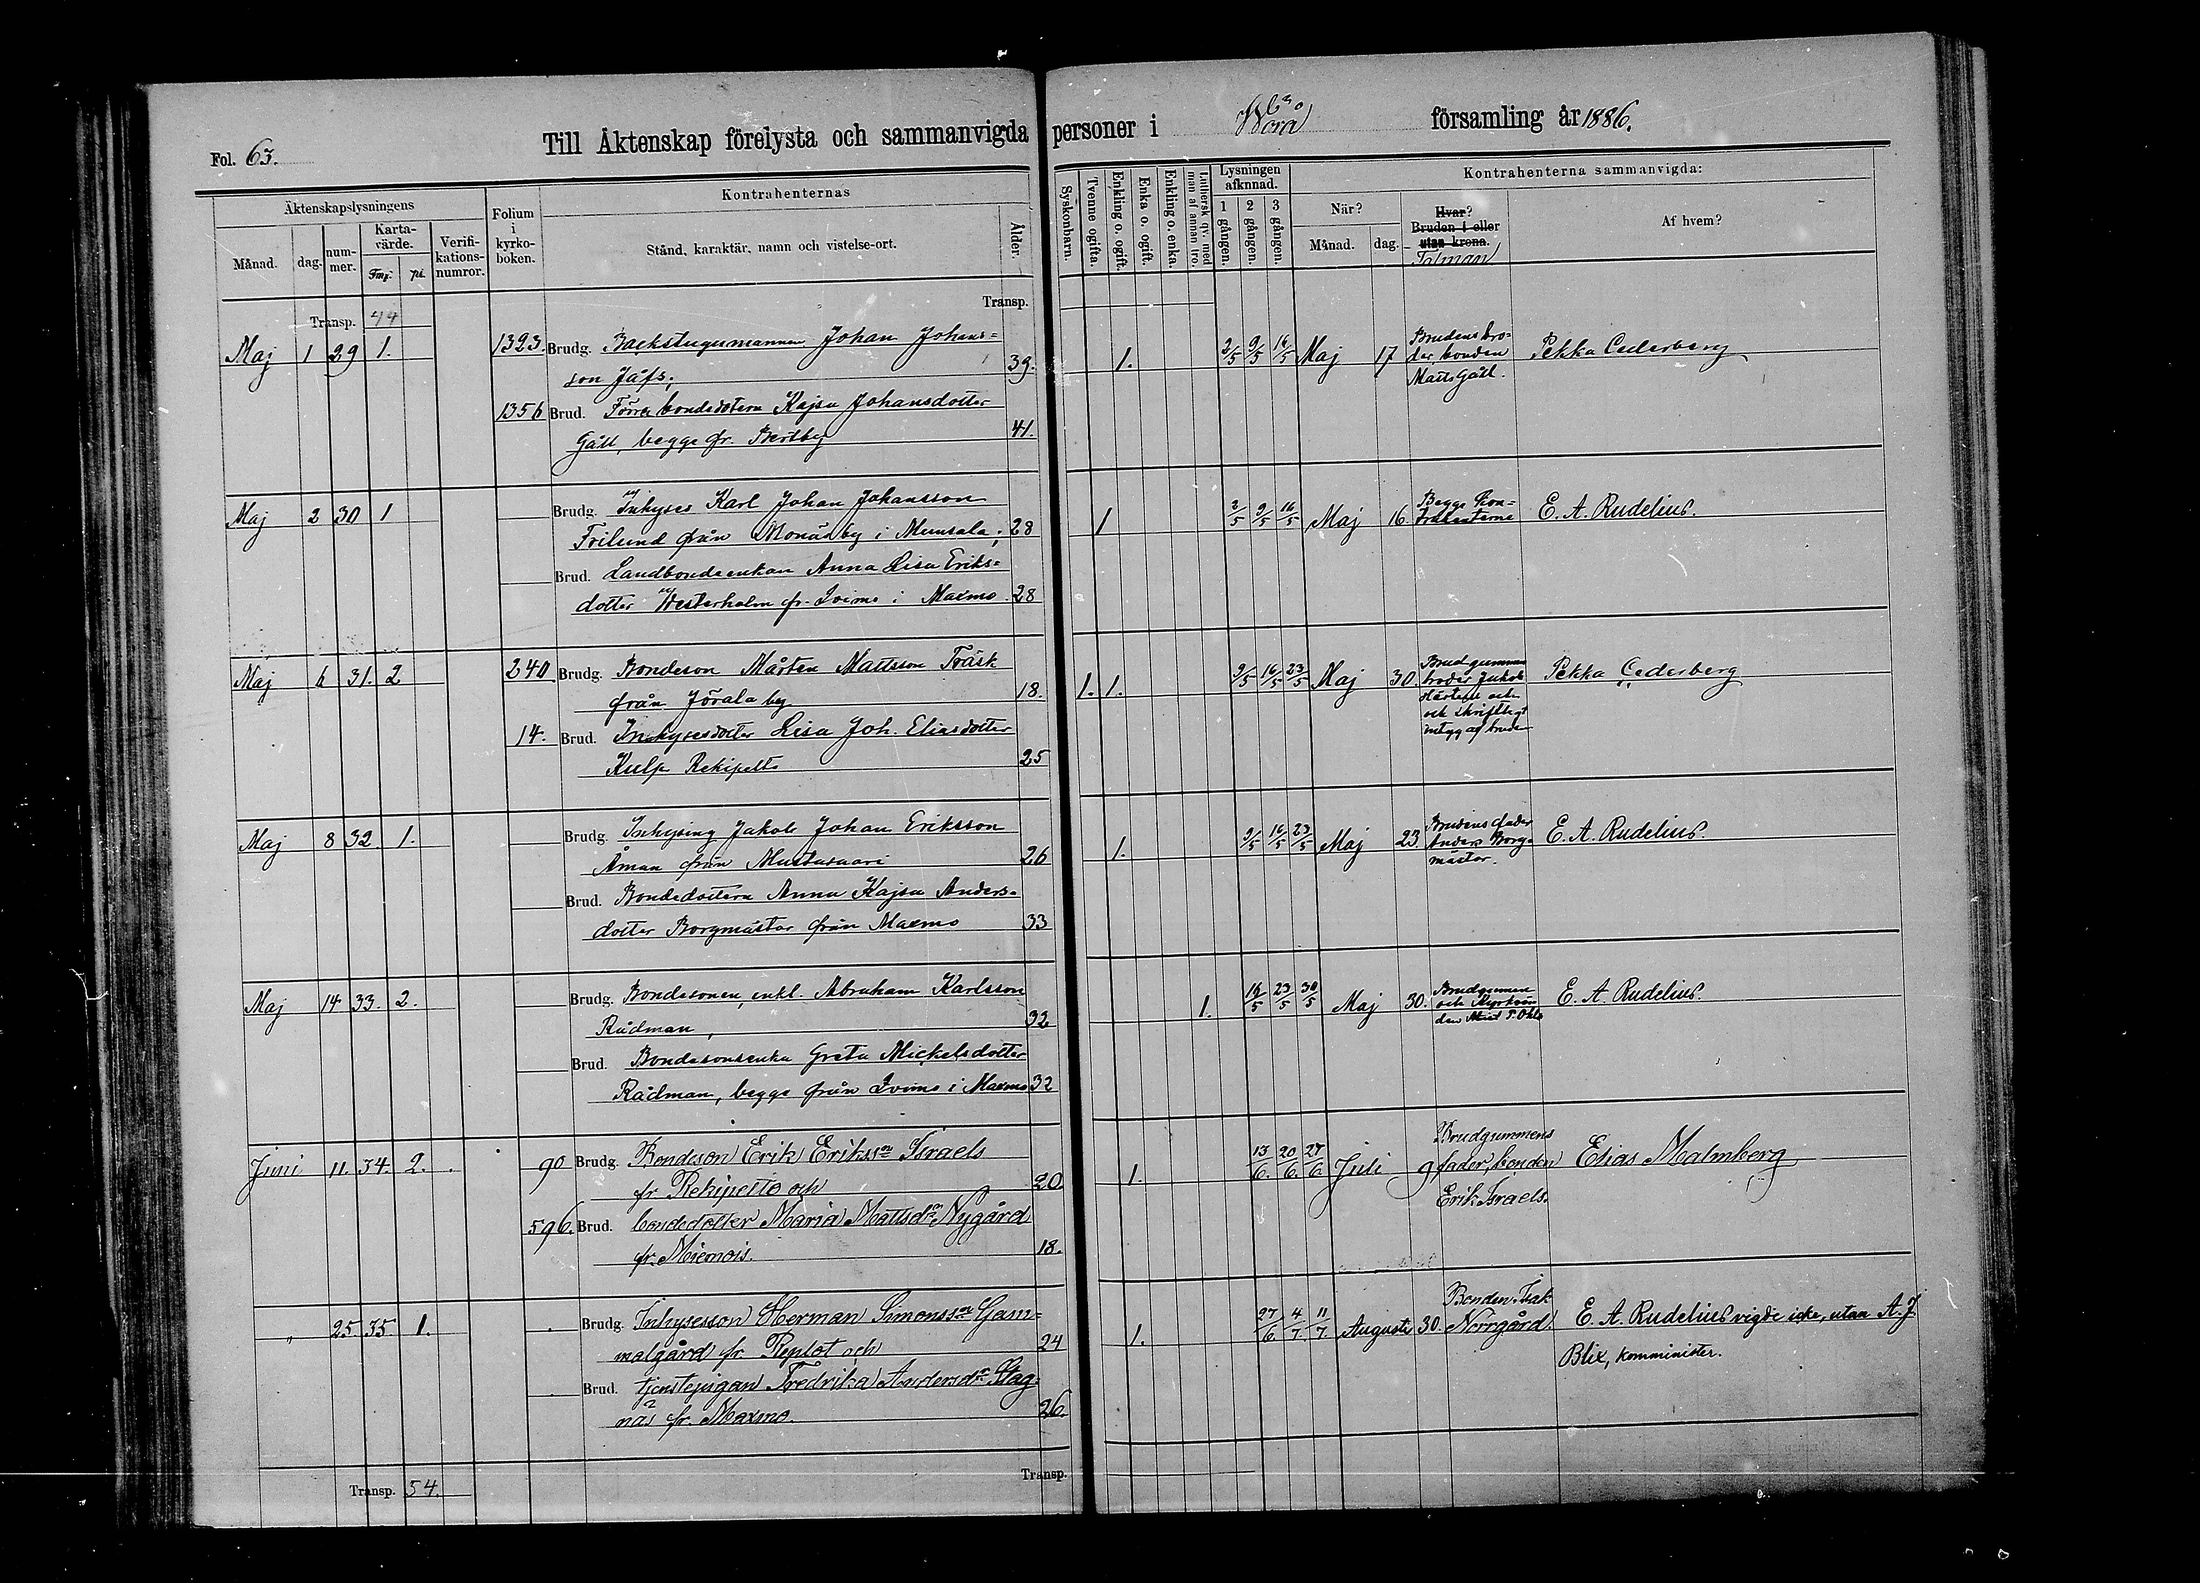 Fol. 63.
Till Äktenskap förelysta och sammanvigda personer i Wörå församling år 1886.
Äktenskapslysningens
Folium i kyrko-boken.
Kontrahenternas
Månad. dag. num-mer. Karta-värde. Fmg. pi. Verifi-kations-numror.
Stånd, karaktär, namn och vistelse-ort.
Ålder.
Syskonbarn. Tvenne ogifta. Enkling o. ogift. Enka o. ogift. Enkling o. enka. Luthersk qv. med man af annan tro.
Lysningen afknnad.
1 gången. 2 gången. 3 gången.
Kontrahenterna sammanvigda:
När? Månad. dag.
Hvar? Bruden i eller utan krona. Talman
Af hvem?
Transp. 44 Transp.
Maj 1 29 1. 1323. Brudg. Backstugumannen Johan Johans-
son Jåfs; 39.
1356 Brud. Förra bondedotern Kajsa Johansdotter
Gäll, begge fr. Bertby 41.
1. 2/5 9/5 16/5 Maj 17 Brudens bro-
der bonden
Matts Gäll.
Pekka Cederberg
Maj 2 30 1 Brudg. Inhyses Karl Johan Johansson
Frilund från Monäs by i Munsala; 28
Brud. Landbondeenkan Anna Lisa Eriks-
dotter Westerholm fr. Ivimo i Maxmo 28
1 2/5 9/5 16/5 Maj 16 Begge kon-
trahenterne
E. A. Rudelius.
Maj 6 31. 2 240 Brudg. Bondeson Mårten Mattsson Träsk
från Jörala by 18.
14. Brud. Inhysesdotter Lisa Joh. Eliasdotter
Kulp Rekipelto 25
1. 1. 9/5 16/5 23/5 Maj 30. Brudgummens
broder Jakob
och skriftligt
intyg af brude
Pekka Cederberg
Maj 8 32. 1. Brudg. Inhysing Jakob Johan Eriksson
Åman från Mustasaari 26
Brud. Bondedottern Anna Kajsa Anders-
dotter Borgmästar från Maxmo 33
1. 9/5 16/5 23/5 Maj 23. Brudens fader
Anders Borg-
mästar.
E. A. Rudelius.
Maj 14 33. 2. Brudg. Bondesonen, enkl. Abraham Karlsson
Rådman, 32
Brud. Bondesonsenka Greta Mickelsdotter
Rådman, begge från Ivimo i Maxmo 32
1. 16/5 23/5 30/5 Maj 30. Brudgummen
och
E. A. Rudelius.
Juni 11. 34. 2. 90 Brudg. Bondeson Erik Erikssn Israels
fr. Rekipelto och 20
596. Brud. bondedotter Maria Mattsdr Nygård
fr. Miemois. 18.
1. 13/6. 20/6. 27/6. Juli 9 Brudgummens
fader, bonden
Erik Israels.
Elias Malmberg
" 25 35 1. Brudg. Inhysesson Herman Simonssn Gam-
malgård fr. Replot och 24
Brud. tjenstepigan Fredrika Andersdr Slag-
näs fr. Maxmo. 26.
1. 27/6 4/7 11/7 Augusti 30. Bonden Isak
Norrgård.
E. A. Rudelius vigde icke, utan A. J.
Blix, komminister.
Transp. 54. Transp.